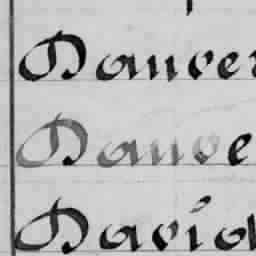 Danver
Danve
David